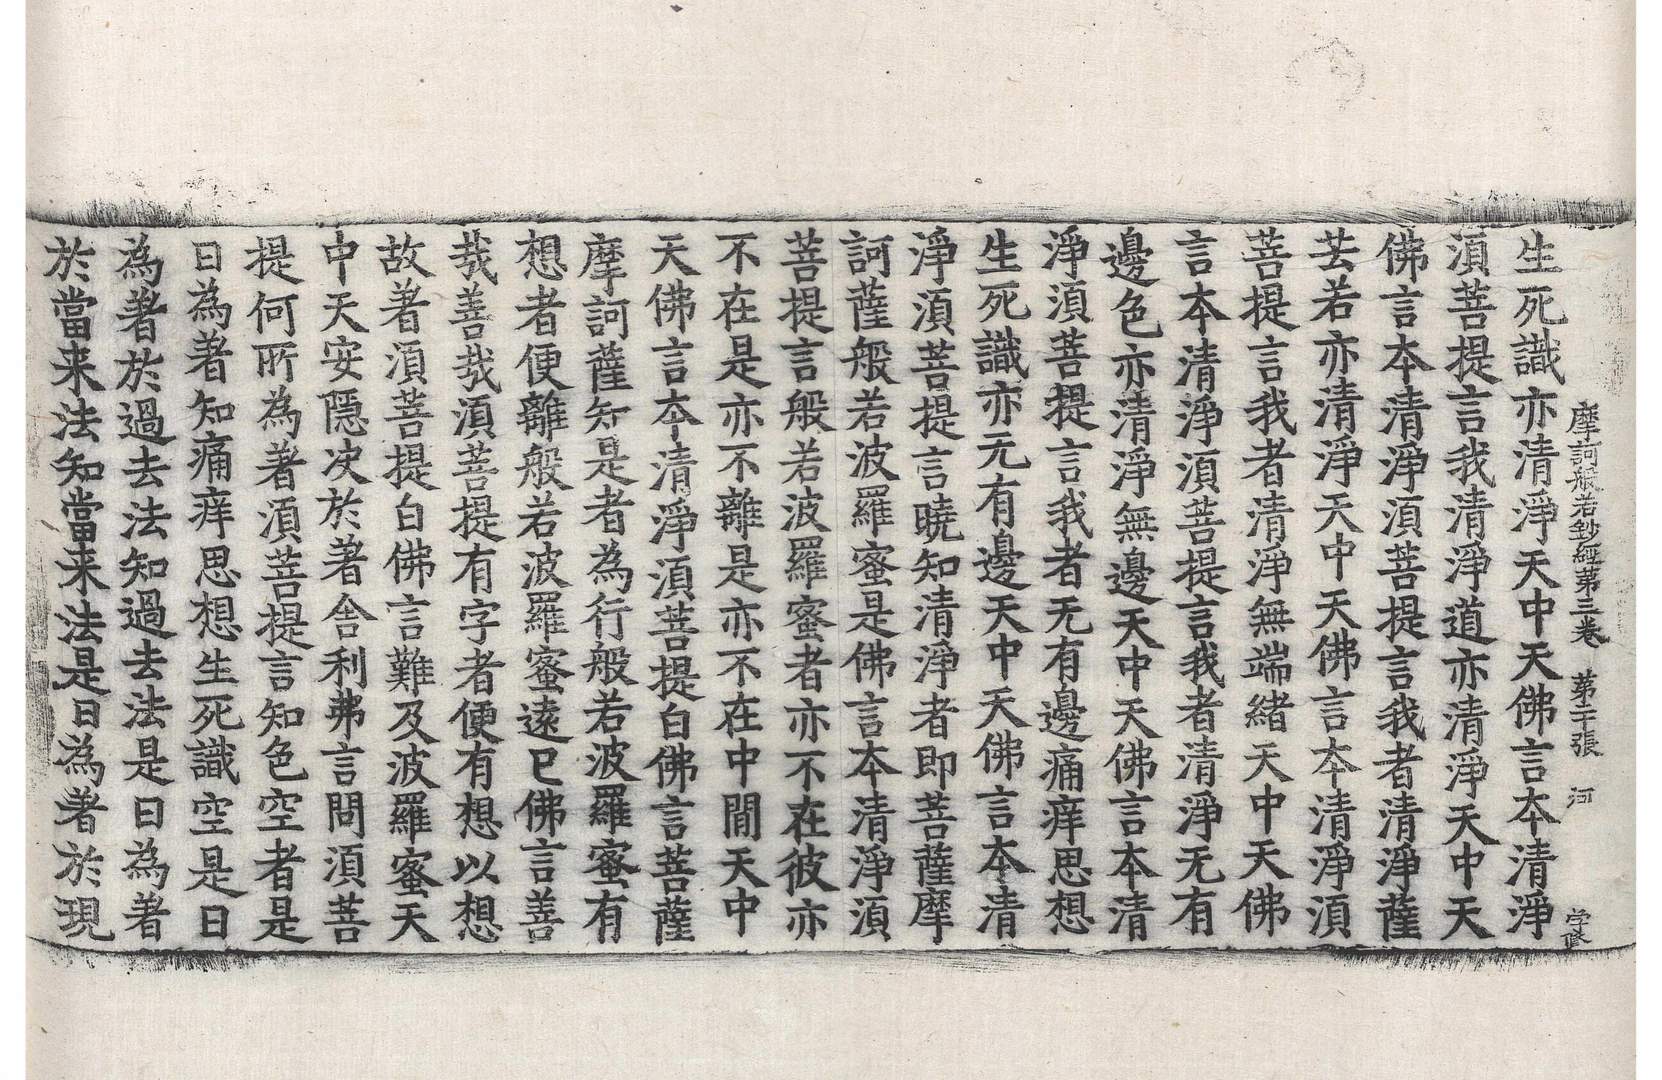 摩訶般若鈔經第三卷 第二十張 河 学隆
生死識亦清淨天中天佛言本清淨
須菩提言我清淨道亦清淨天中天
佛言本清淨須菩提言我者清淨薩
芸若亦清淨天中天佛言本清淨須
菩提言我者清淨無端緒天中天佛
言本清淨須菩提言我者清淨无有
邊色亦清淨無邊天中天佛言本清
淨須菩提言我者无有邊痛痒思想
生死識亦无有邊天中天佛言本清
淨須菩提言曉知清淨者即菩薩摩
訶薩般若波羅蜜是佛言本清淨須
菩提言般若波羅蜜者亦不在彼亦
不在是亦不離是亦不在中間天中
天佛言本清淨須菩提白佛言菩薩
摩訶薩知是者為行般若波羅蜜有
想者便離般若波羅蜜遠已佛言善
哉善哉須菩提有字者便有想以想
故著須菩提白佛言難及波羅蜜天
中天安隱决於著舍利弗言問須菩
提何所為著須菩提言知色空者是
曰為著知痛痒思想生死識空是曰
為著於過去法知過去法是曰為著
於當来法知當来法是曰為著於現